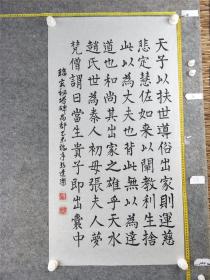 天子以扶世導俗出家則運慈
悲定慧佐如来以闡教利生捨
此以為丈夫也背此無以為達
道也和尚其出家之雄乎天水
趙氏世為秦人初母張夫人夢
梵僧謂曰當生貴子即出囊中
臨玄秘塔碑